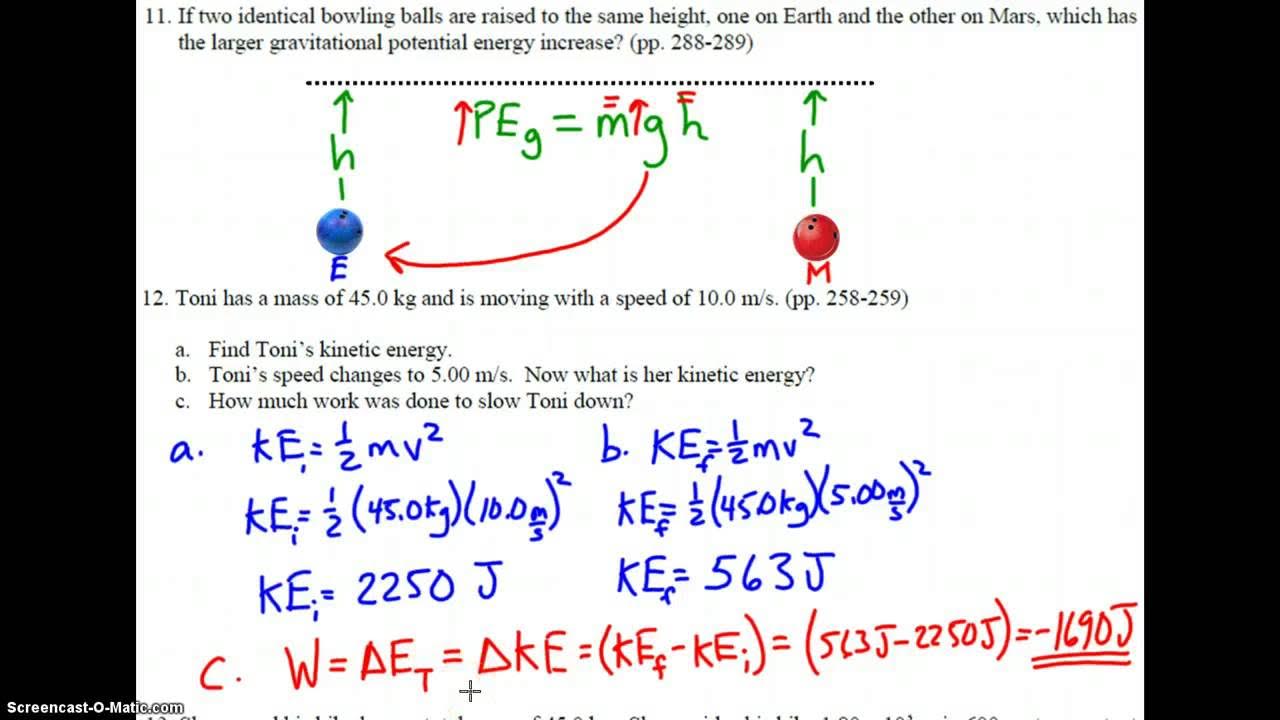 11. If two identical bowling balls are raised to the same height, one on Earth and the other on Mars, which has
the larger gravitational potential energy increase? (pp. 288-289)
↑PEg = m̿↑g h̿
h h
E M
12. Toni has a mass of 45.0 kg and is moving with a speed of 10.0 m/s. (pp. 258-259)
a. Find Toni's kinetic energy.
b. Toni's speed changes to 5.00 m/s. Now what is her kinetic energy?
c. How much work was done to slow Toni down?
a. KEi = 1/2 mv² b. KEf = 1/2 mv²
KEi = 1/2 (45.0kg)(10.0 m/s)² KEf = 1/2 (45.0kg)(5.00 m/s)²
KEi = 2250 J KEf = 563 J
c. W = ΔET = ΔKE = (KEf - KEi) = (563J - 2250J) = -1690J
Screencast-O-Matic.com